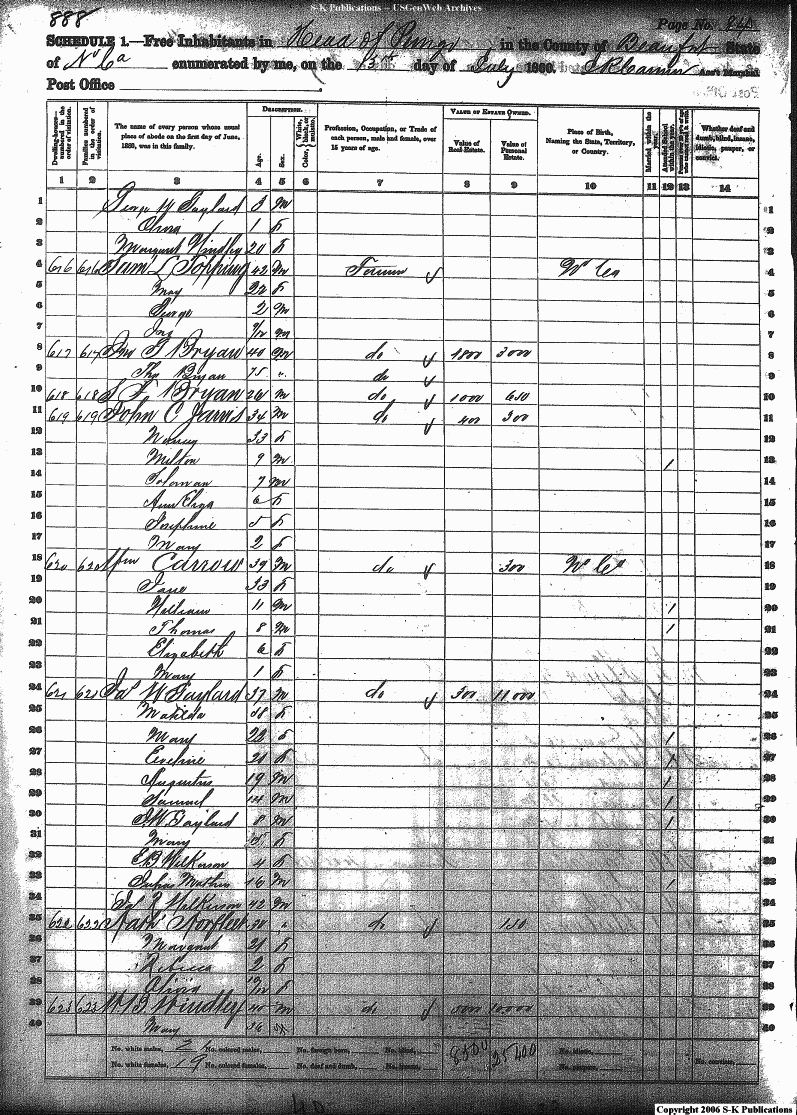 S-K Publications – USGenWeb Archives
888
Page No.
SCHEDULE 1.—Free Inhabitants in Head of Pungo in the County of Beaufort State
of N Ca enumerated by me, on the 13th day of July 1860. Ass't Marshal
Post Office
Dwelling-houses—numbered in the order of visitation.
Families numbered in the order of visitation.
The name of every person whose usual place of abode on the first day of June, 1860, was in this family.
DESCRIPTION.
Age.
Sex.
Color, White, black, or mulatto.
Profession, Occupation, or Trade of each person, male and female, over 15 years of age.
VALUE OF ESTATE OWNED.
Value of Real Estate.
Value of Personal Estate.
Place of Birth, Naming the State, Territory, or Country.
Married within the year.
Attended School within the year.
Whether deaf and dumb, blind, insane, idiotic, pauper, or convict.
1 2 3 4 5 6 7 8 9 10 11 12 13 14
1 Gaylard 3 m 1
2 1 f 2
3 Margaret Windley 20 f 3
4 616 616 Sam L Topping 42 m Farmer N Ca 4
5 May 22 f 5
6 George 2 m 6
7 m 7
8 617 617 Jno Bryan 40 m do 1800 3000 8
9 Bryan 75 do 9
10 618 618 Bryan 26 m do 1000 650 10
11 619 619 John C Jarvis 34 m do 400 300 11
12 Nancy 33 f 12
13 Milton 9 m / 13
14 Soloman 7 m 14
15 Ann Eliza 6 f 15
16 Josephine 5 f 16
17 Mary 2 f 17
18 620 620 Wm Carrow 39 m do 300 N Ca 18
19 Jane 33 f 19
20 William 11 m / 20
21 Thomas 8 m / 21
22 Elizabeth 6 f 22
23 Mary 1 f 23
24 621 621 Jas W Gaylard 37 m do 500 11000 24
25 Matilda 38 f 25
26 Mary 22 f / 26
27 Eveline 21 f / 27
28 Augustus 19 m / 28
29 Samuel 14 m / 29
30 Gaylard 8 m / 30
31 Mary 5 f 31
32 Wilkerson 4 f 32
33 Mathis 16 m / 33
34 Wilkerson 42 m 34
35 622 622 Nath Norfleet 30 do 150 35
36 Margaret 21 f 36
37 Rebecca 2 f 37
38 Olivia f 38
39 623 623 Windley 40 m do 10000 39
40 Mary 40
No. white males, No. colored males, No. foreign born, No. blind, 8500 25400 No. idiotic,
No. white females, 19 No. colored females, No. deaf and dumb, No. insane, No. paupers, No. convicts,
Copyright 2006 S-K Publications